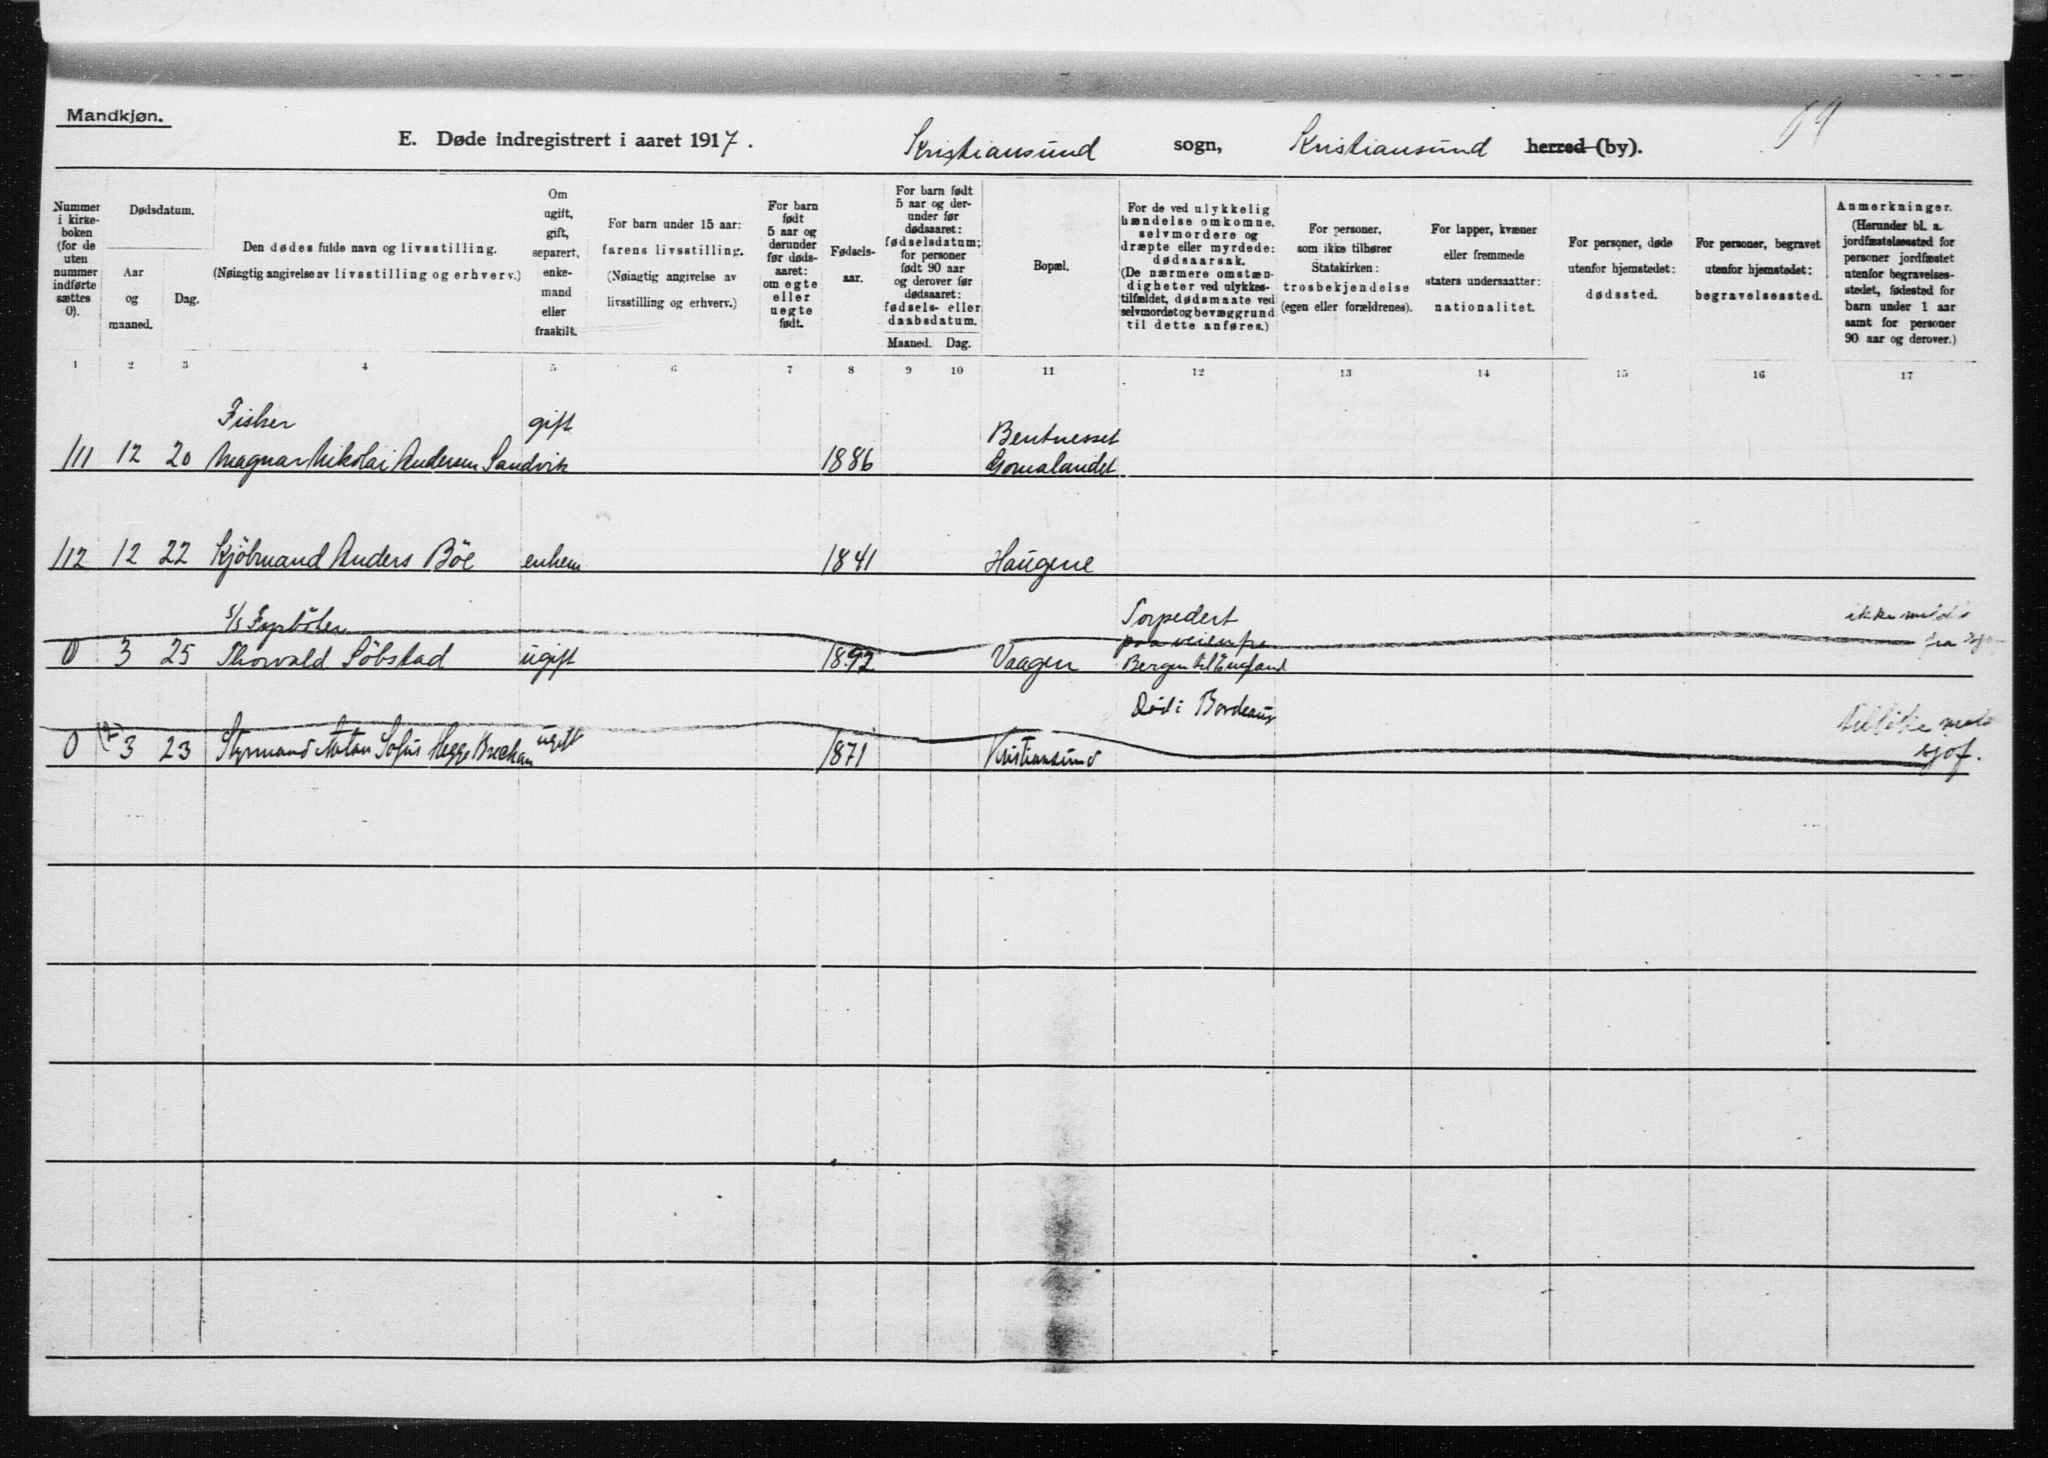 Mandkjøn.
E. Døde indregistrert i aaret 1917. Kristiansund sogn, Kristiansund herred (by).
Nummer i kirkeboken (for de uten nummer indførte sættes 0).
Dødsdatum.
Aar og maaned.
Dag.
Den dødes fulde navn og livsstilling.
(Nøiagtig angivelse av livsstilling og erhverv.)
Om ugift, gift, separert, enkemand eller fraskilt.
For barn under 15 aar: farens livsstilling.
(Nøiagtig angivelse av livsstilling og erhverv.)
For barn født 5 aar og derunder før dødsaaret: om egte eller uegte født.
Fødselsaar.
For barn født 5 aar og derunder før dødsaaret: fødselsdatum; for personer født 90 aar og derover før dødsaaret: fødsels- eller daabsdatum.
Maaned. Dag.
Bopæl.
For de ved ulykkelig hændelse omkomne, selvmordere og dræpte eller myrdede: dødsaarsak.
(De nærmere omstændigheter ved ulykkestilfældet, dødsmaate ved selvmord og bevæggrund til dette anføres.)
For personer, som ikke tilhører Statskirken: trosbekjendelse (egen eller forældrenes).
For lapper, kvæner eller fremmede staters undersaatter: nationalitet.
For personer, døde utenfor hjemstedet: dødssted.
For personer, begravet utenfor hjemstedet: begravelsessted.
Anmerkninger.
(Herunder bl. a. jordfæstelsessted for personer jordfæstet utenfor begravelsesstedet, fødested for barn under 1 aar samt for personer 90 aar og derover.)
1 2 3 4 5 6 7 8 9 10 11 12 13 14 15 16 17
Fisker gift Bentnesset
111 12 20 Magnar Nikolai Andersen Sandvik 1886 Gomalandet
112 12 22 Kjöbmand Anders Böe enkem. 1841 Haugene
S/S Torpedert ikke
paa veien fra fra
0 3 25 Thorvald Söbstad ugift 1892 Vaagen Bergen til England
Död i Bordeaux
0 3 23 Styrmand Anton Sofus Hegge ugift 1871 Kristiansund
sjof.